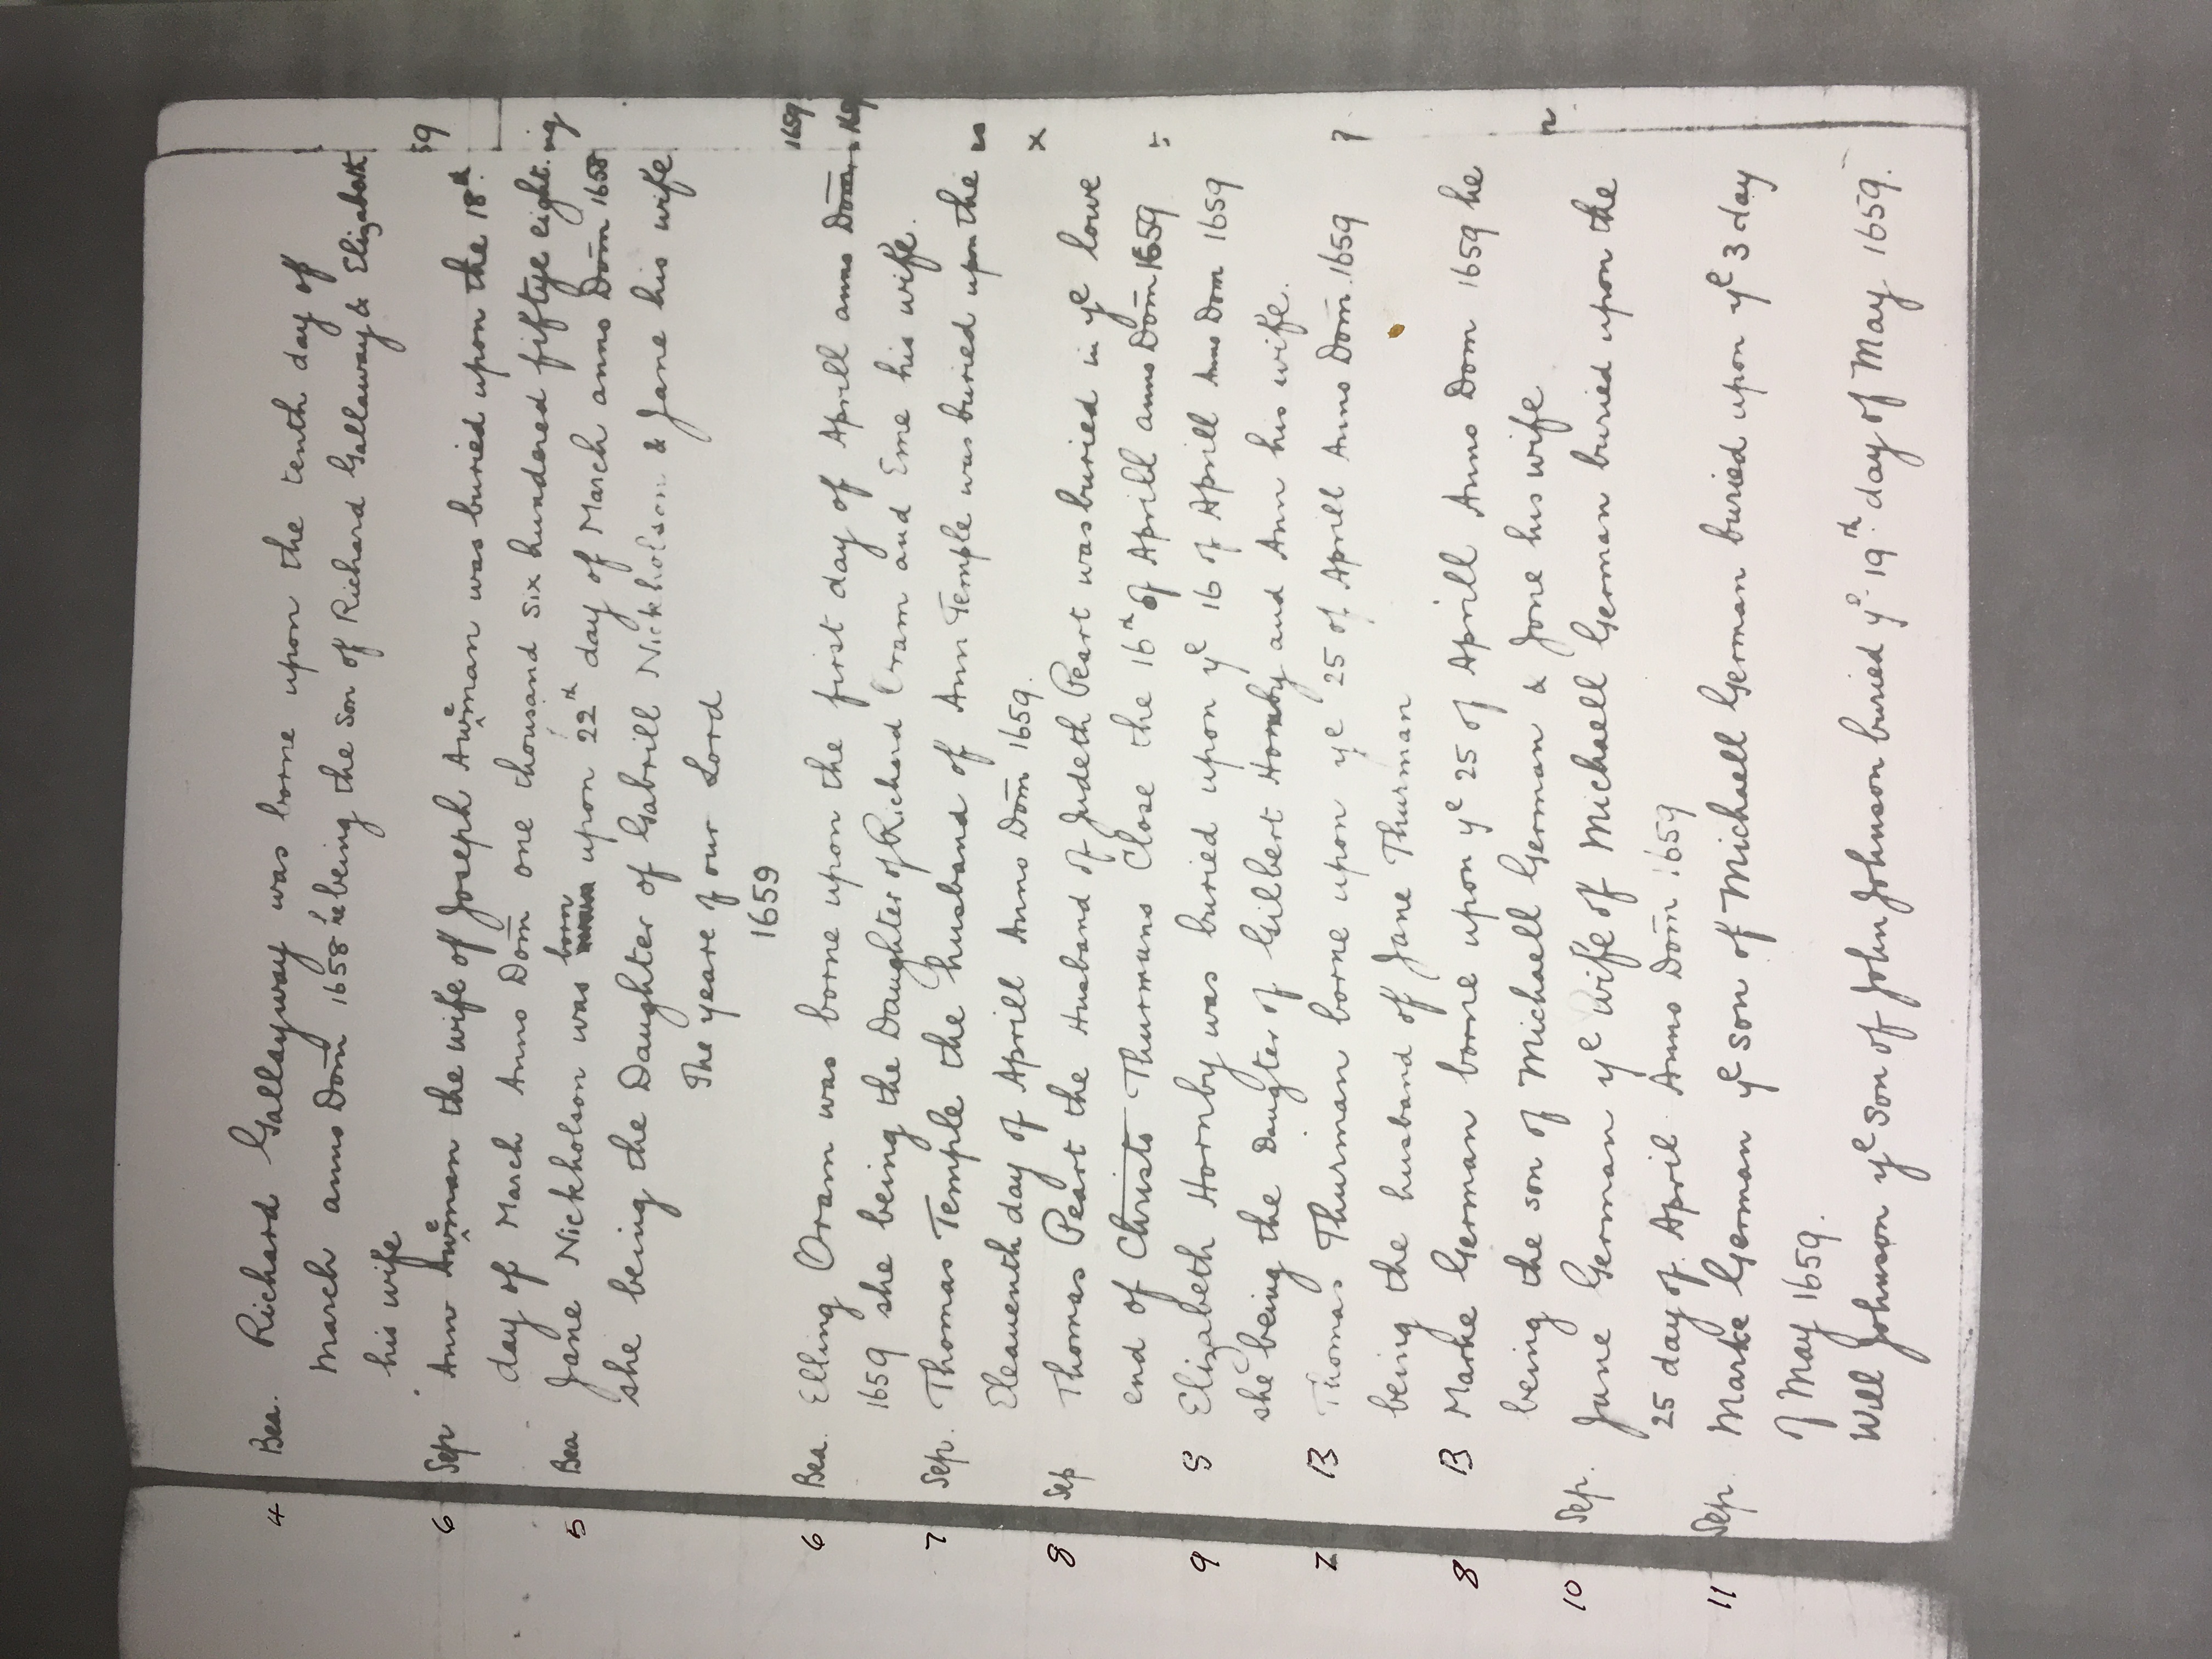 4 Bea. Richard Gallayway was borne upon the tenth day of
March anno Dom̄ 1658 he being the son of Richard Gallaway & Elizabeth
his wife
59
6 Sep Ann Aweman the wife of Joseph Aweman was buried upon the 18th
day of March Anno Dom̄ one thousand six hundered fiftye eight.
5 Bea Jane Nickholson was born upon 22th day of March anno Dom̄ 1658
she being the Daughter of Gabrill Nickholson & Jane his wife
The yeare of our Lord
1659
6 Bea. Elling Oram was borne upon the first day of Aprill anno Dom̄
1659 she being the Daughter of Richard Oram and Eme his wife.
7 Sep. Thomas Temple the husband of Ann Temple was buried upon the
Eleauenth day of Aprill Anno Dom̄ 1659.
8 Sep Thomas Peart the Husband of Judeth Peart was buried in ye lowe x
end of Christo Thurmans Close the 16th of Aprill anno Dom̄ 1659
9 S Elizabeth Hornby was buried upon ye 16 of Aprill Anno Dom 1659
she being the Daughter of Gilbert Hornby and Ann his wife.
7 B Thomas Thurman borne upon ye 25 of April Anno Dom̄. 1659
being the husband of Jane Thurman
8 B Marke German borne upon ye 25 of Aprill Anno Dom 1659 he
being the son of Michaell German & Jone his wife
10 Sep. Jane German ye wife of Michaell German buried upon the
25 day of April Anno Dom̄ 1659
11 Sep. Marke German ye son of Michaell German buried upon ye 3 day
of May 1659.
Will Johnson ye son of John Johnson buried ye 19th day of May 1659.